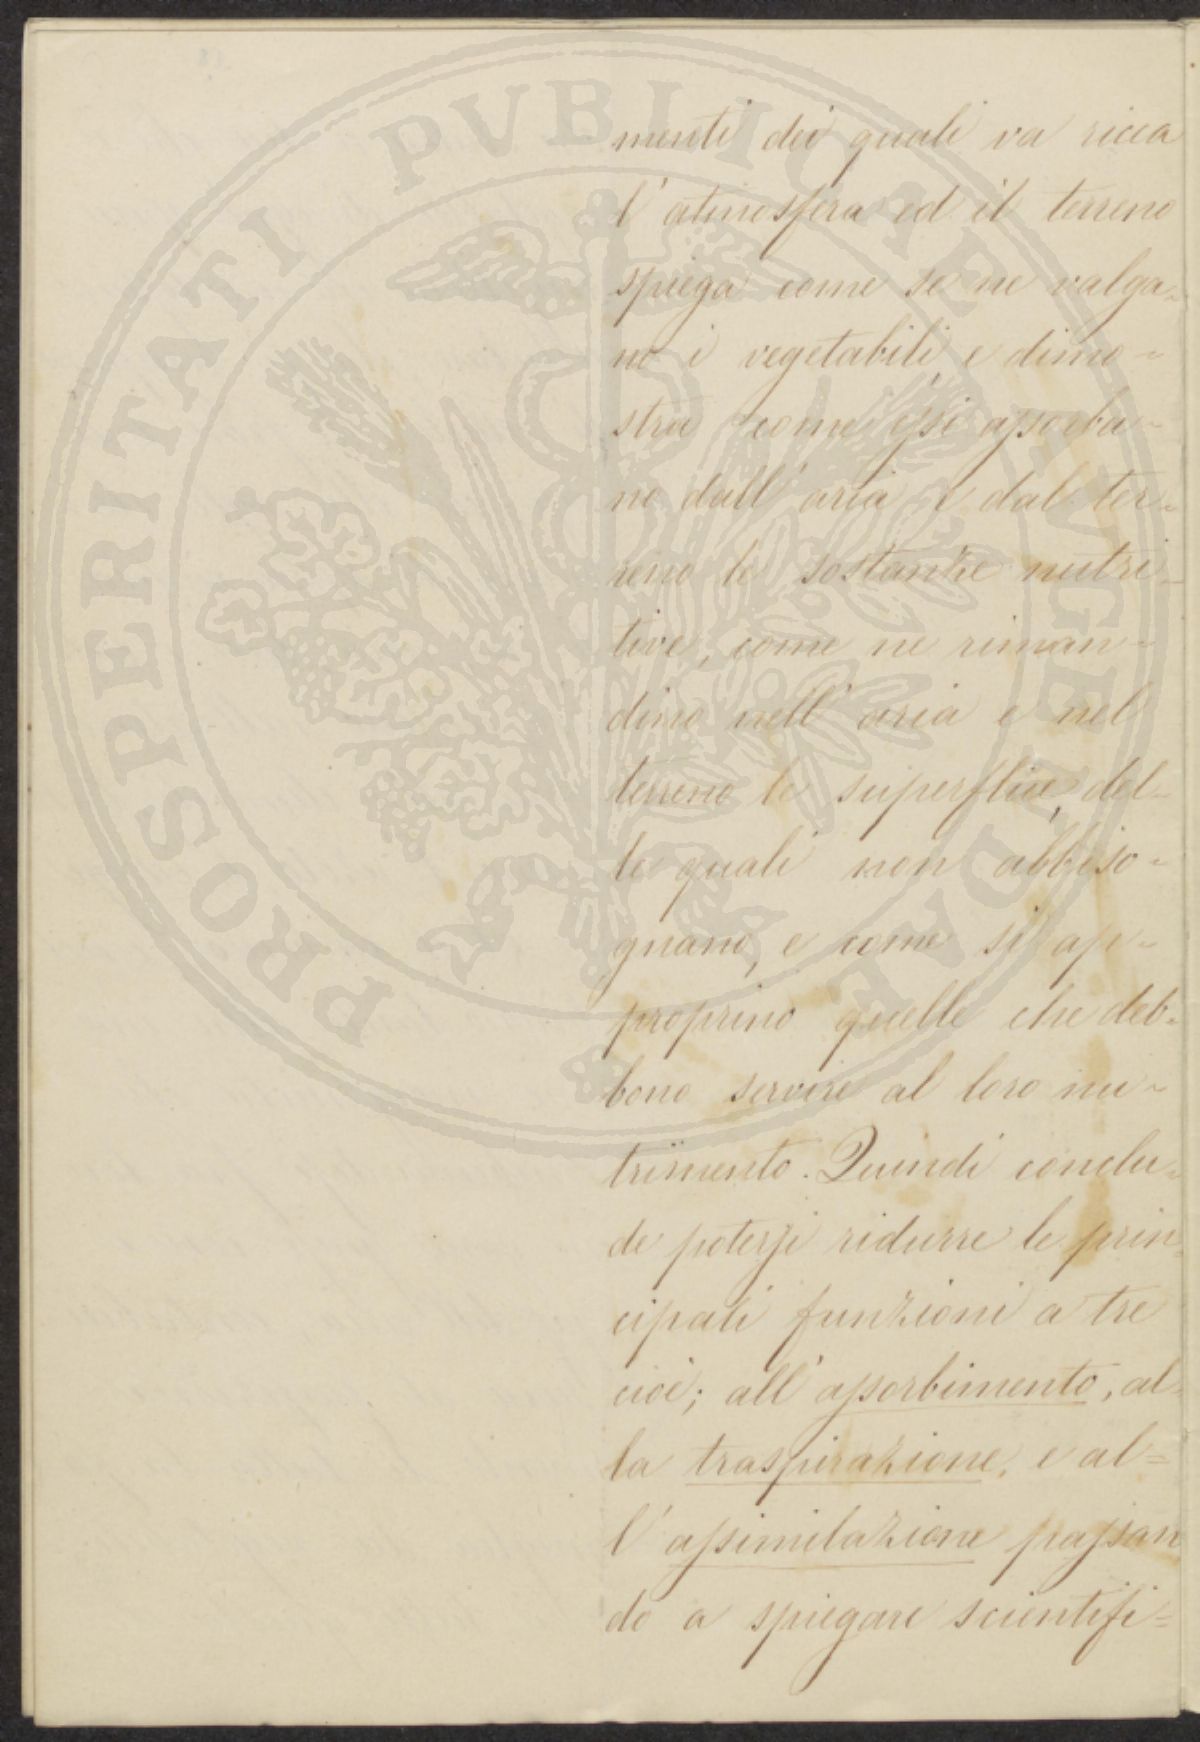 menti dei quali va ricca
l'atmosfera ed il terreno
spiega come se ne valga-
no i vegetabili, e dimo-
stra come essi assorba-
no dall'aria e dal ter-
reno le sostanze nutri-
tive, come ne riman-
dino nell'aria e nel
terreno le superflue, del-
le quali non abbiso-
gnano, e come si ap-
proprino quelle che deb-
bono servire al loro nu-
trimento. Quindi conclu-
de potersi ridurre le prin
cipali funzioni a tre
cioè; all'assorbimento, al-
la traspirazione, e al=
l'assimilazione passan
do a spiegare scientifi=
PROSPERITATI PVBLICAE AVGENDAE